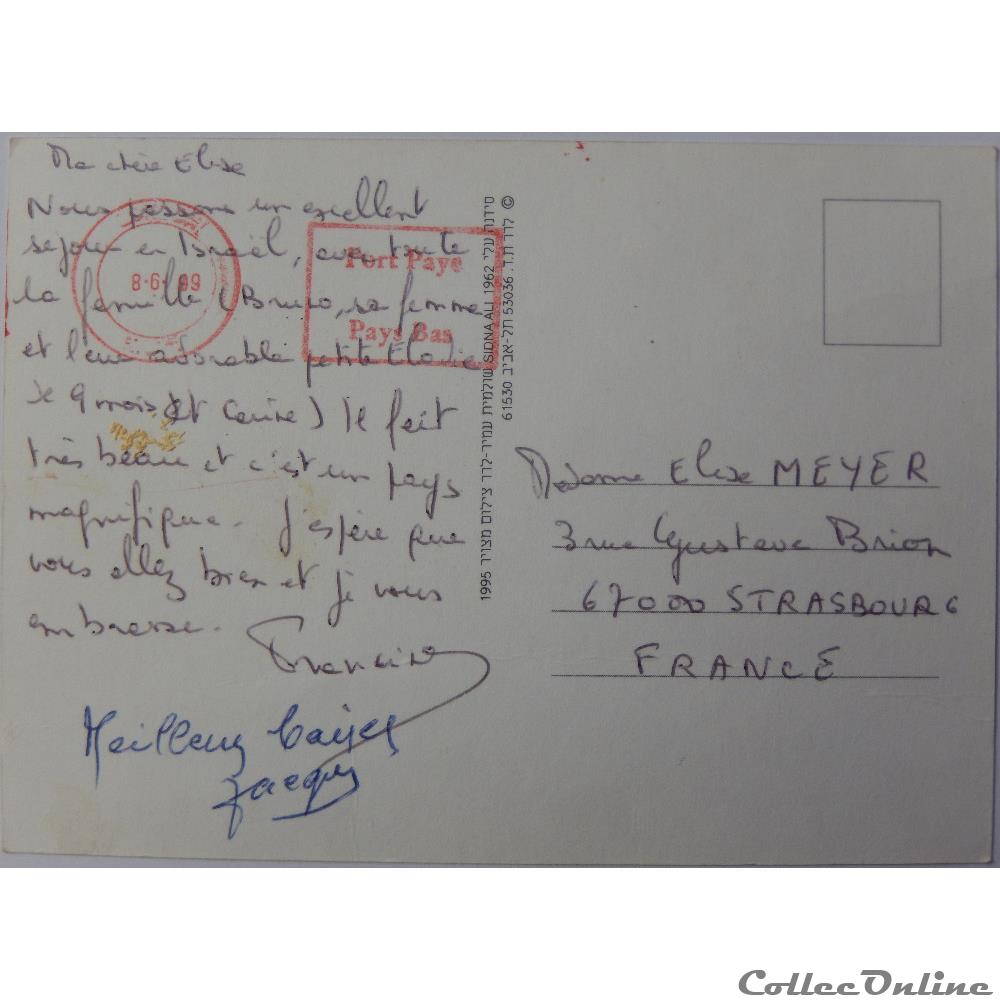 Ma chère Elise
Nous passons un excellent
séjour en Israël, avec toute
la famille (Bruno, sa femme
et leur adorable petite Elodie
de 9 mois et Carine) Il fait
très beau et c'est un pays
magnifique. J'espère que
vous allez bien et je vous
embrasse.
Francine
Meilleurs baisers
Jacques
8·6·99
Port Payé
Pays Bas
סידנת עלי 1962 SIDNA ALI
שולמית עמיר-לדר צילום מצויר 1995
© לדר ת.ד. 53036 תל-אביב 61530
Madame Elise MEYER
3 rue Gustave Brion
67000 STRASBOURG
FRANCE
CollecOnline